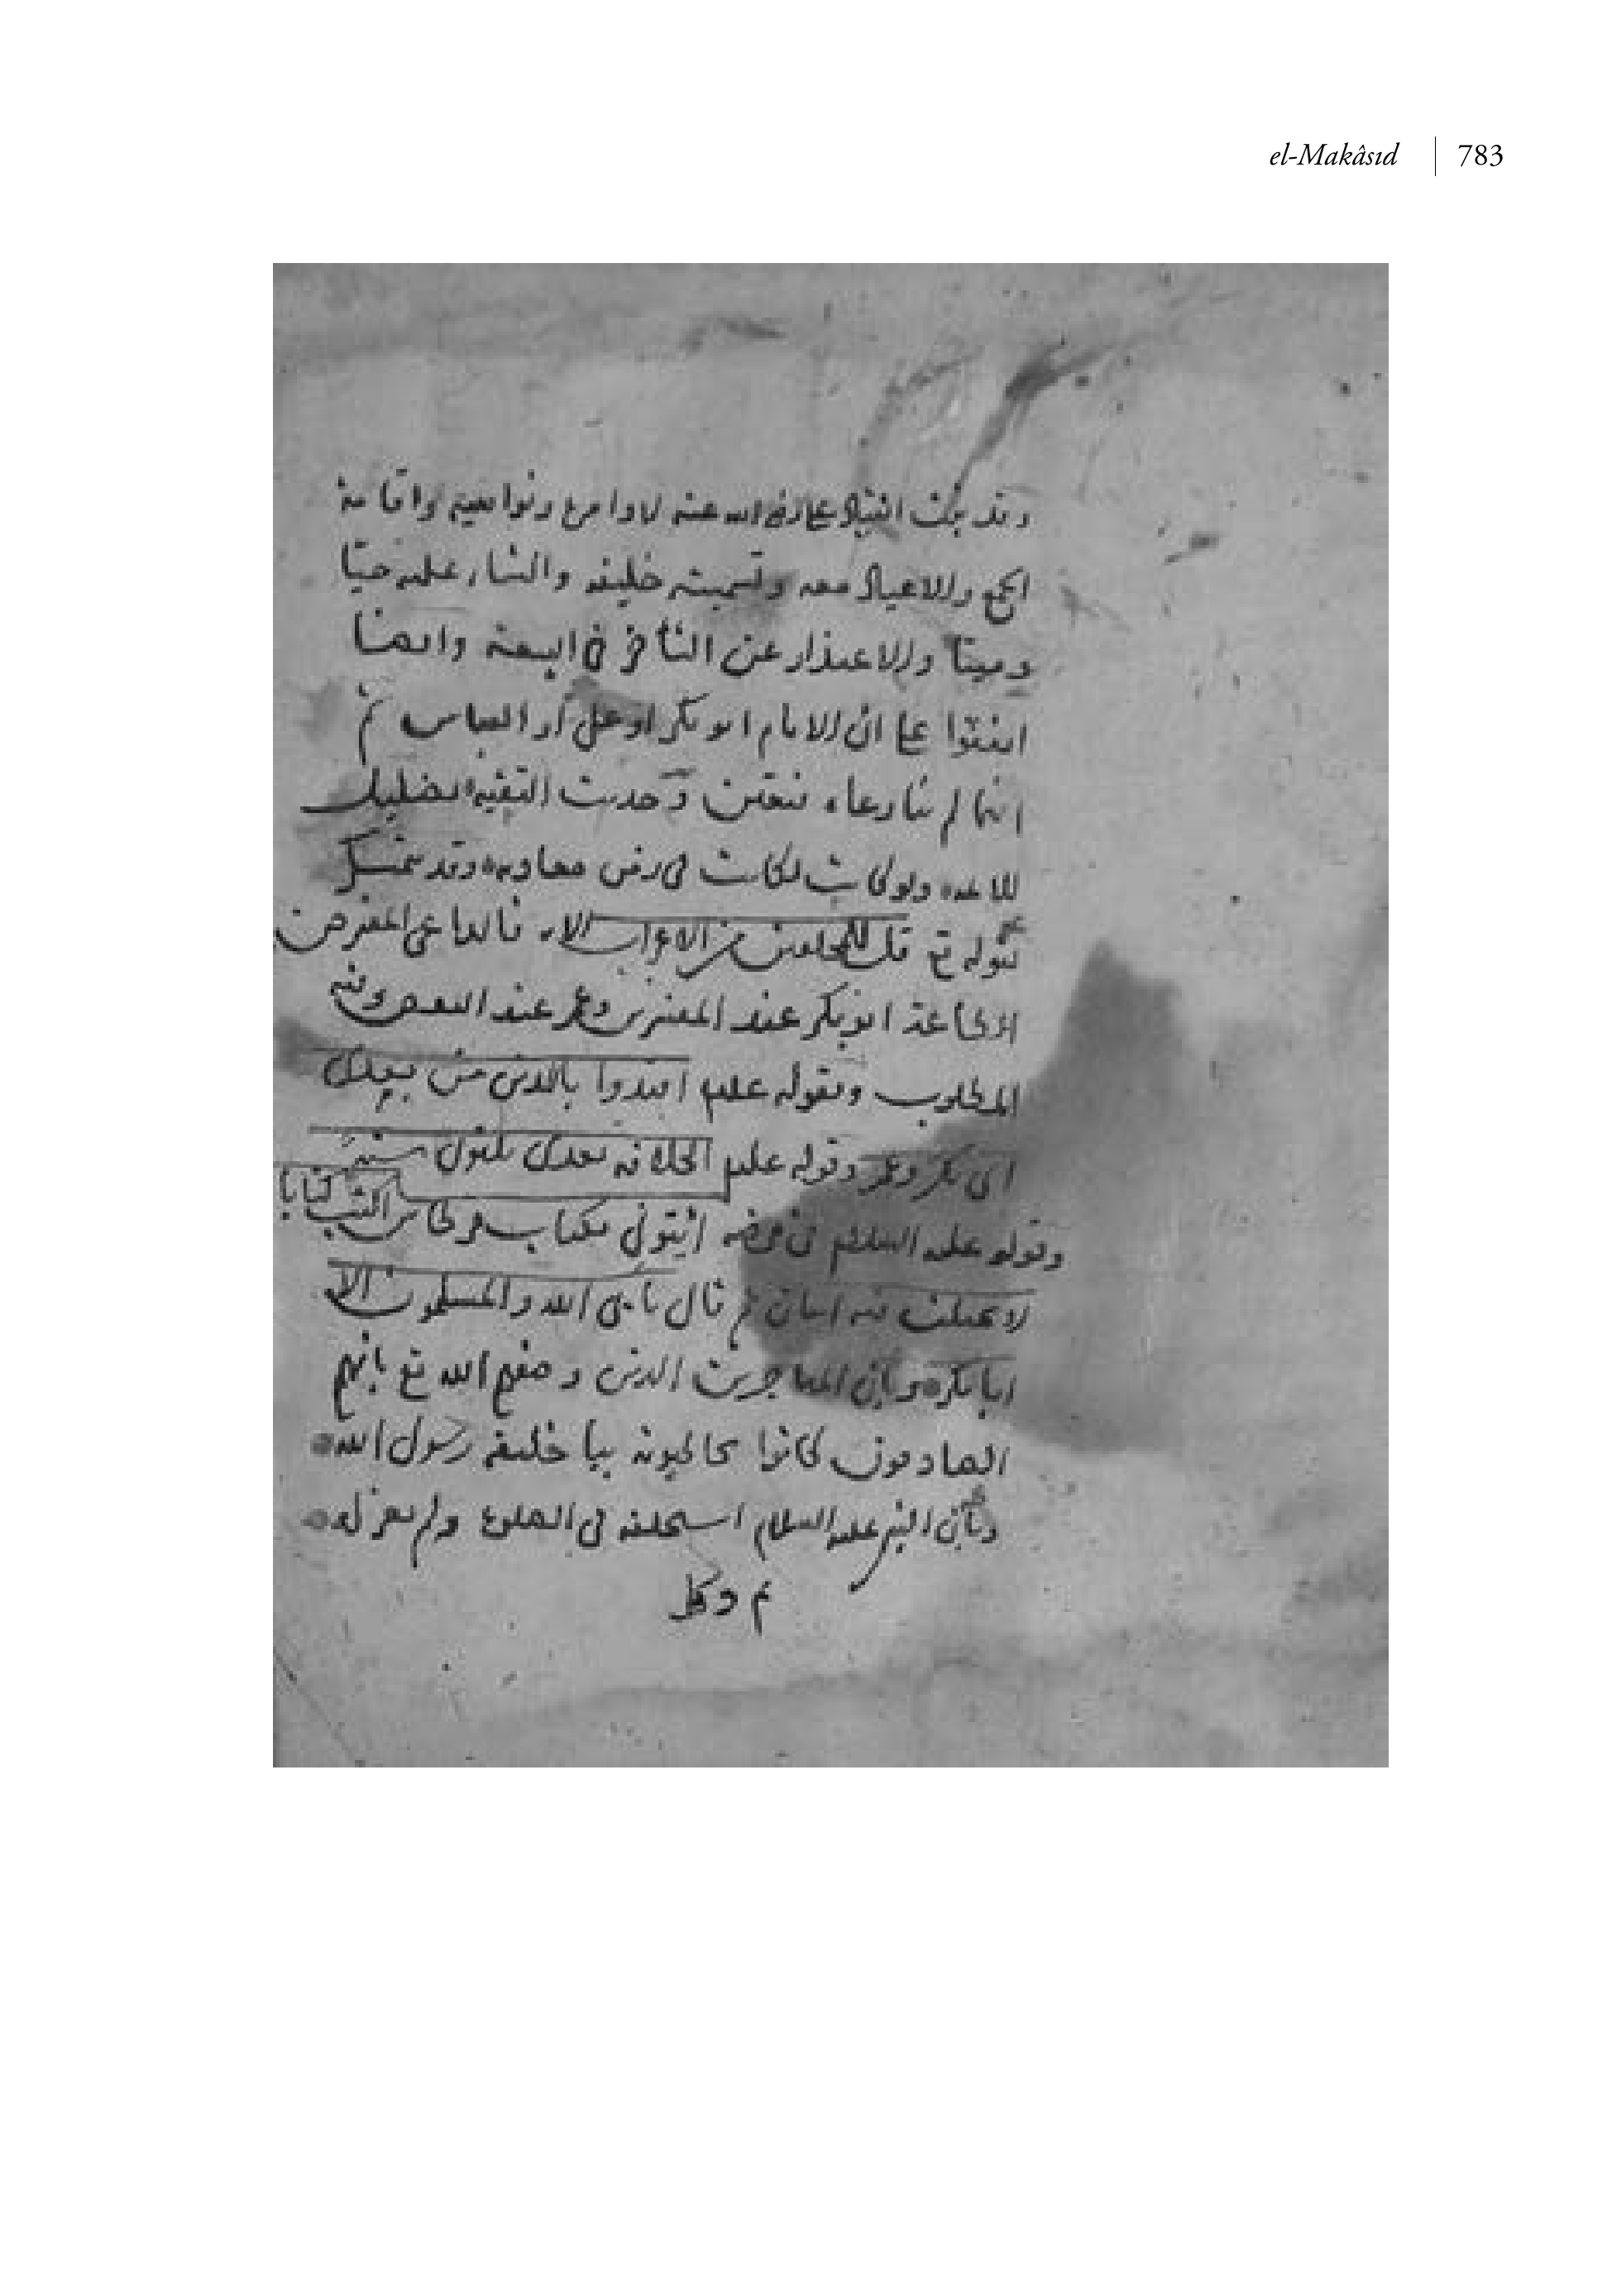 el-Makâsıd | 783
وقد ثبت انقياد علي رضي الله عنه لاوامره ونواهيه واقامة
الجمع والاعياد معه وتسميته خليفة والثناء عليه حيّا
وميتا والاعتذار عن التأخر في البيعة وايضا
اتفقوا على ان الامام ابو بكر او علي او العباس ثم
انهما لم ينازعاه فتعين وحديث التقية تضليل
للامة ولو كانت لكانت في زمن معاوية وقد يتمسك
بقوله تع قل للمخلفين من الاعراب الاية فالداعي المفترض
الطاعة ابو بكر عند المفسرين وعمر عند البعض وفيه
المطلوب وبقوله عليه اقتدوا بالذين من بعدى
ابى بكر وعمر وقوله عليه الخلافة بعدى ثلثون سنة
وقوله عليه السلام في مرضه ائتوني بكتاب وقرطاس اكتب كتابا
لا يختلف فيه اثنان ثم قال يأبى الله والمسلمون الا
ابا بكر وبان المهاجرين الذين وصفهم الله تع بانهم
الصادقون كانوا يخاطبونه بيا خليفة رسول الله
وبان النبي عليه السلام استخلفه في الصلوة ولم يعزله
م وكل